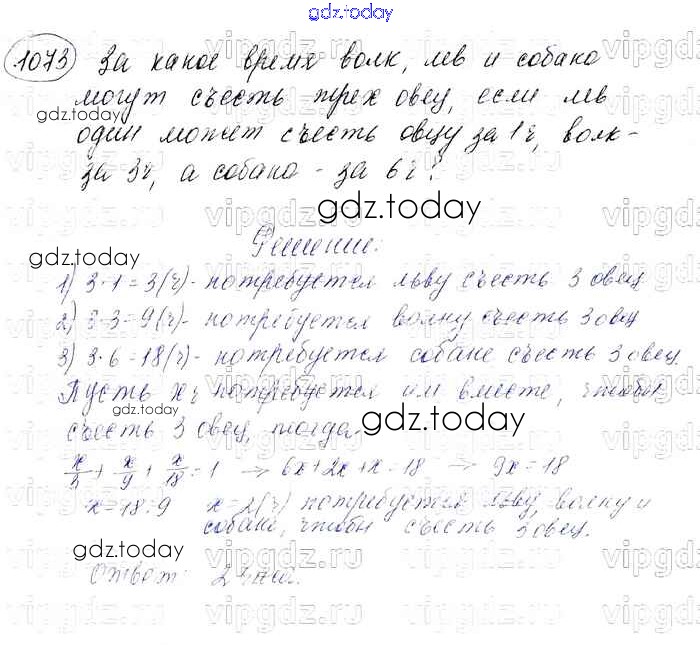 gdz.today
1073 За какое время волк, лев и собака
могут съесть трех овец, если лев
gdz.today
один может съесть овцу за 1ч, волк-
за 3ч, а собака - за 6ч?
gdz.today
Решение:
gdz.today
1) 3·1=3(ч)- потребуется льву съесть 3 овец
2) 3·3=9(ч)- потребуется волку съесть 3 овец
3) 3·6=18(ч)- потребуется собаке съесть 3 овец.
Пусть x ч потребуется им вместе, чтобы
gdz.today
gdz.today
съесть 3 овец, тогда
x/3 + x/9 + x/18 = 1 → 6x+2x+x=18 → 9x=18
x=18:9 x=2(ч) потребуется льву, волку и
собаке, чтобы съесть 3 овец.
gdz.today
Ответ: 2 часа.
gdz.today